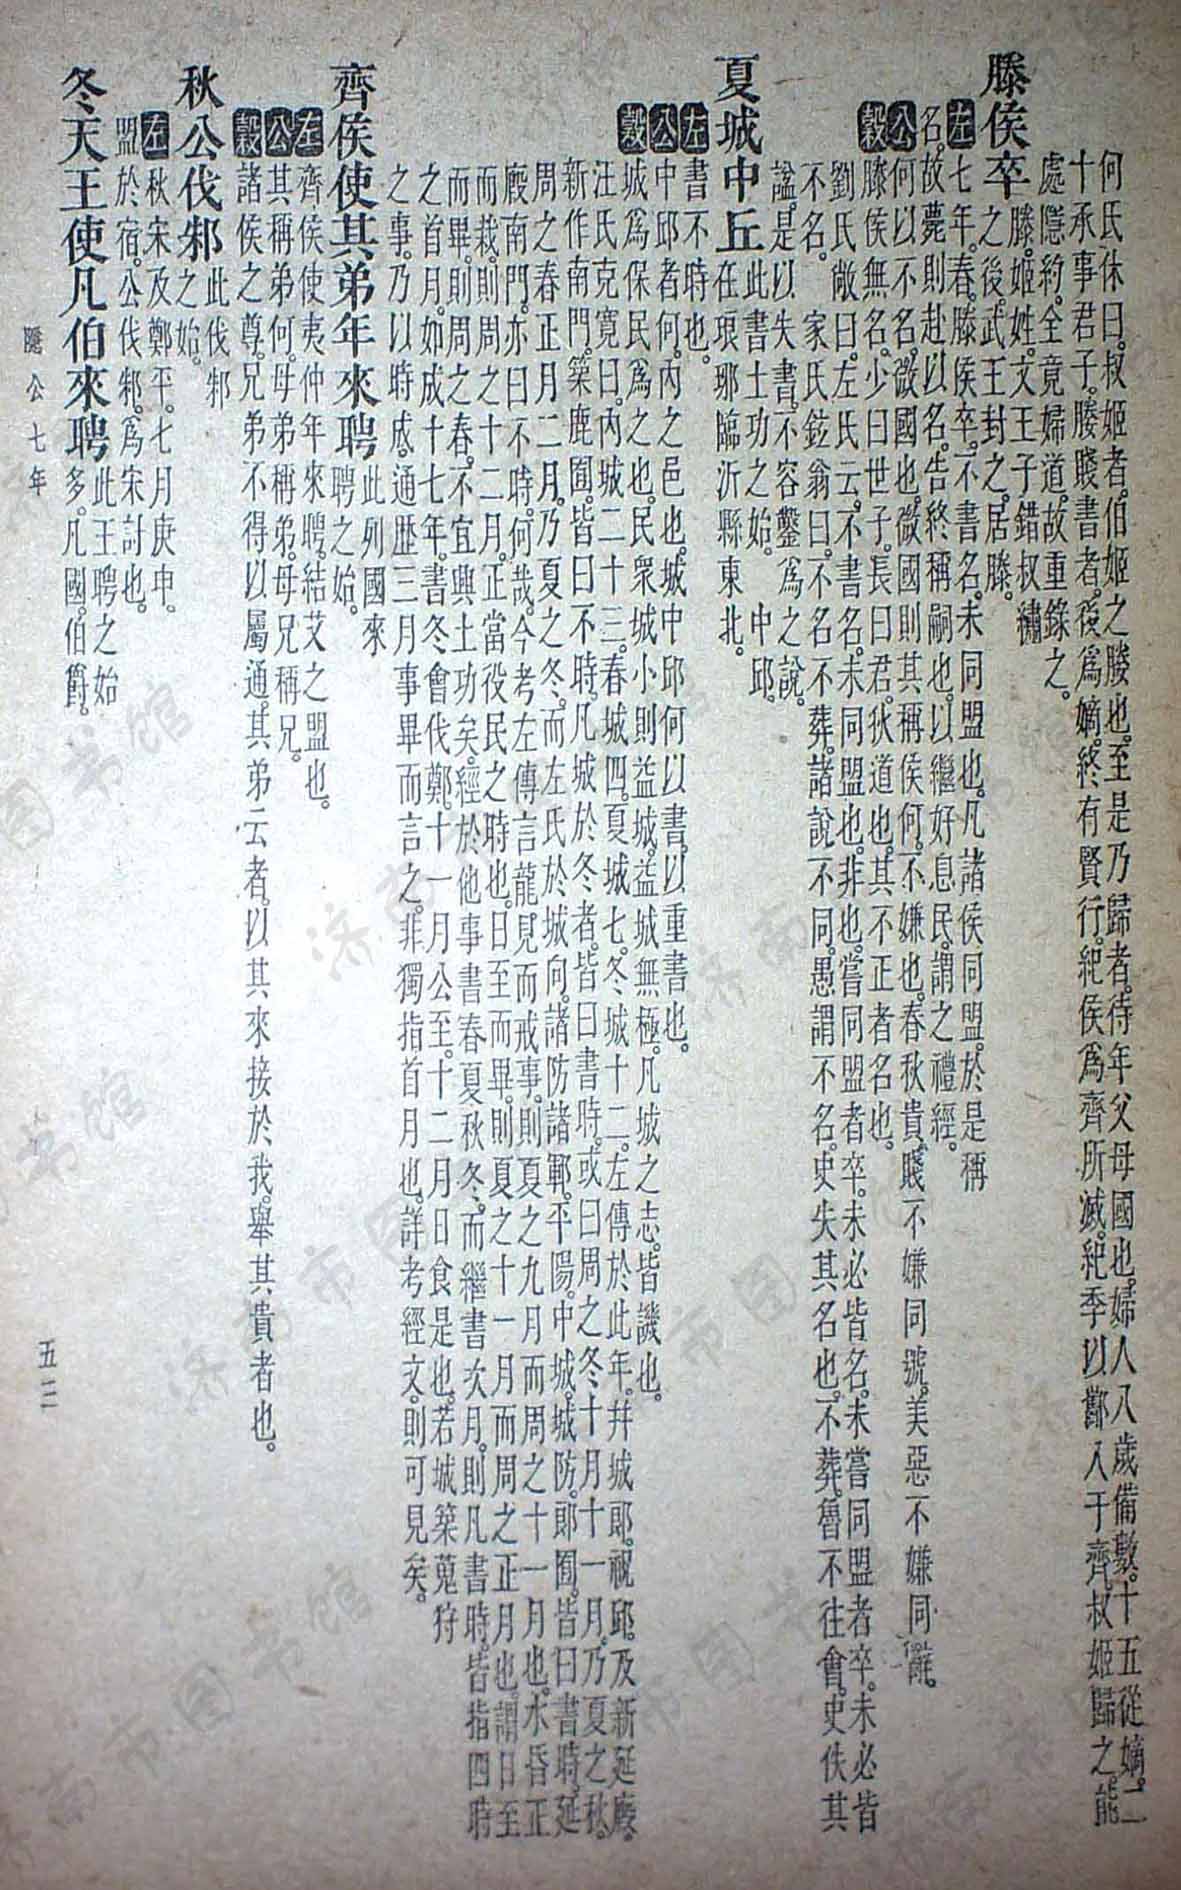 何氏休曰。叔姬者。伯姬之媵也。至是乃歸者。待年父母國也。婦人八歲備數。十五從嫡。二
十承事君子。媵賤書者。後爲嫡。終有賢行。紀侯爲齊所滅。紀季以酅入于齊。叔姬歸之。能
處隱約。全竟婦道。故重錄之。
滕侯卒 滕。姬姓。文王子錯叔繡
之後。武王封之。居滕。
左 七年。春。滕侯卒。不書名。未同盟也。凡諸侯同盟。於是稱
名。故薨則赴以名。告終稱嗣也。以繼好息民。謂之禮經。
公 何以不名。微國也。微國則其稱侯何。不嫌也。春秋貴賤不嫌同號。美惡不嫌同辭。
穀 滕侯無名。少曰世子。長曰君。狄道也。其不正者名也。
劉氏敞曰。左氏云。不書名。未同盟也。非也。嘗同盟者卒。未必皆名。未嘗同盟者卒。未必皆
不名。家氏鉉翁曰。不名不葬。諸說不同。愚謂不名。史失其名也。不葬。魯不往會。史佚其
諡。是以失書。不容鑿爲之說。
夏城中丘 此書土功之始。中邱。
在琅邪臨沂縣東北。
左 書不時也。
公 中邱者何。內之邑也。城中邱何以書。以重書也。
穀 城爲保民爲之也。民衆城小則益城。益城無極。凡城之志。皆譏也。
汪氏克寬曰。內城二十三。春城四。夏城七。冬城十二。左傳於此年。幷城郎。祝邱。及新延廄。
新作南門。築鹿囿。皆曰不時。凡城於冬者。皆曰書時。或曰周之冬十月十一月。乃夏之秋。
周之春正月二月。乃夏之冬。而左氏於城向。諸防諸鄆。平陽。中城。城防。郎囿。皆曰書時。延
廄南門。亦曰不時。何哉。今考左傳言龍見而戒事。則夏之九月而周之十一月也。水昏正
而栽。則周之十二月。正當役民之時也。日至而畢。則夏之十一月而周之正月也。謂日至
而畢。則周之春。不宜興土功矣。經於他事書春夏秋冬。而繼書次月。則凡書時。皆指四時
之首月。如成十七年。書冬會伐鄭。十一月公至。十二月日食是也。若城築蒐狩
之事。乃以時成。通歷三月事畢而言之。非獨指首月也。詳考經文。則可見矣。
齊侯使其弟年來聘 此列國來
聘之始。
左 齊侯使夷仲年來聘。結艾之盟也。
公 其稱弟何。母弟稱弟。母兄稱兄。
穀 諸侯之尊。兄弟不得以屬通。其弟云者。以其來接於我。舉其貴者也。
秋公伐邾 此伐邾
之始。
左 秋。宋及鄭平。七月庚申。
盟於宿。公伐邾。爲宋討也。
冬天王使凡伯來聘 此王聘之始
多。凡國。伯爵。
隱公七年
五三
济南市图书馆